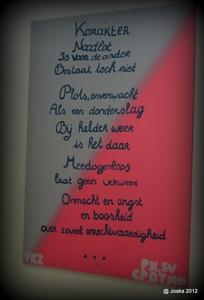 Karakter
Noodlot
Is voor de ander
Bestaat toch niet
Plots, onverwacht
Als een donderslag
Bij helder weer
is het daar
Meedogenloos
laat geen verweer
Onmacht en angst
en boosheid
over zoveel onrechtvaardigheid
...
@ Joska 2012